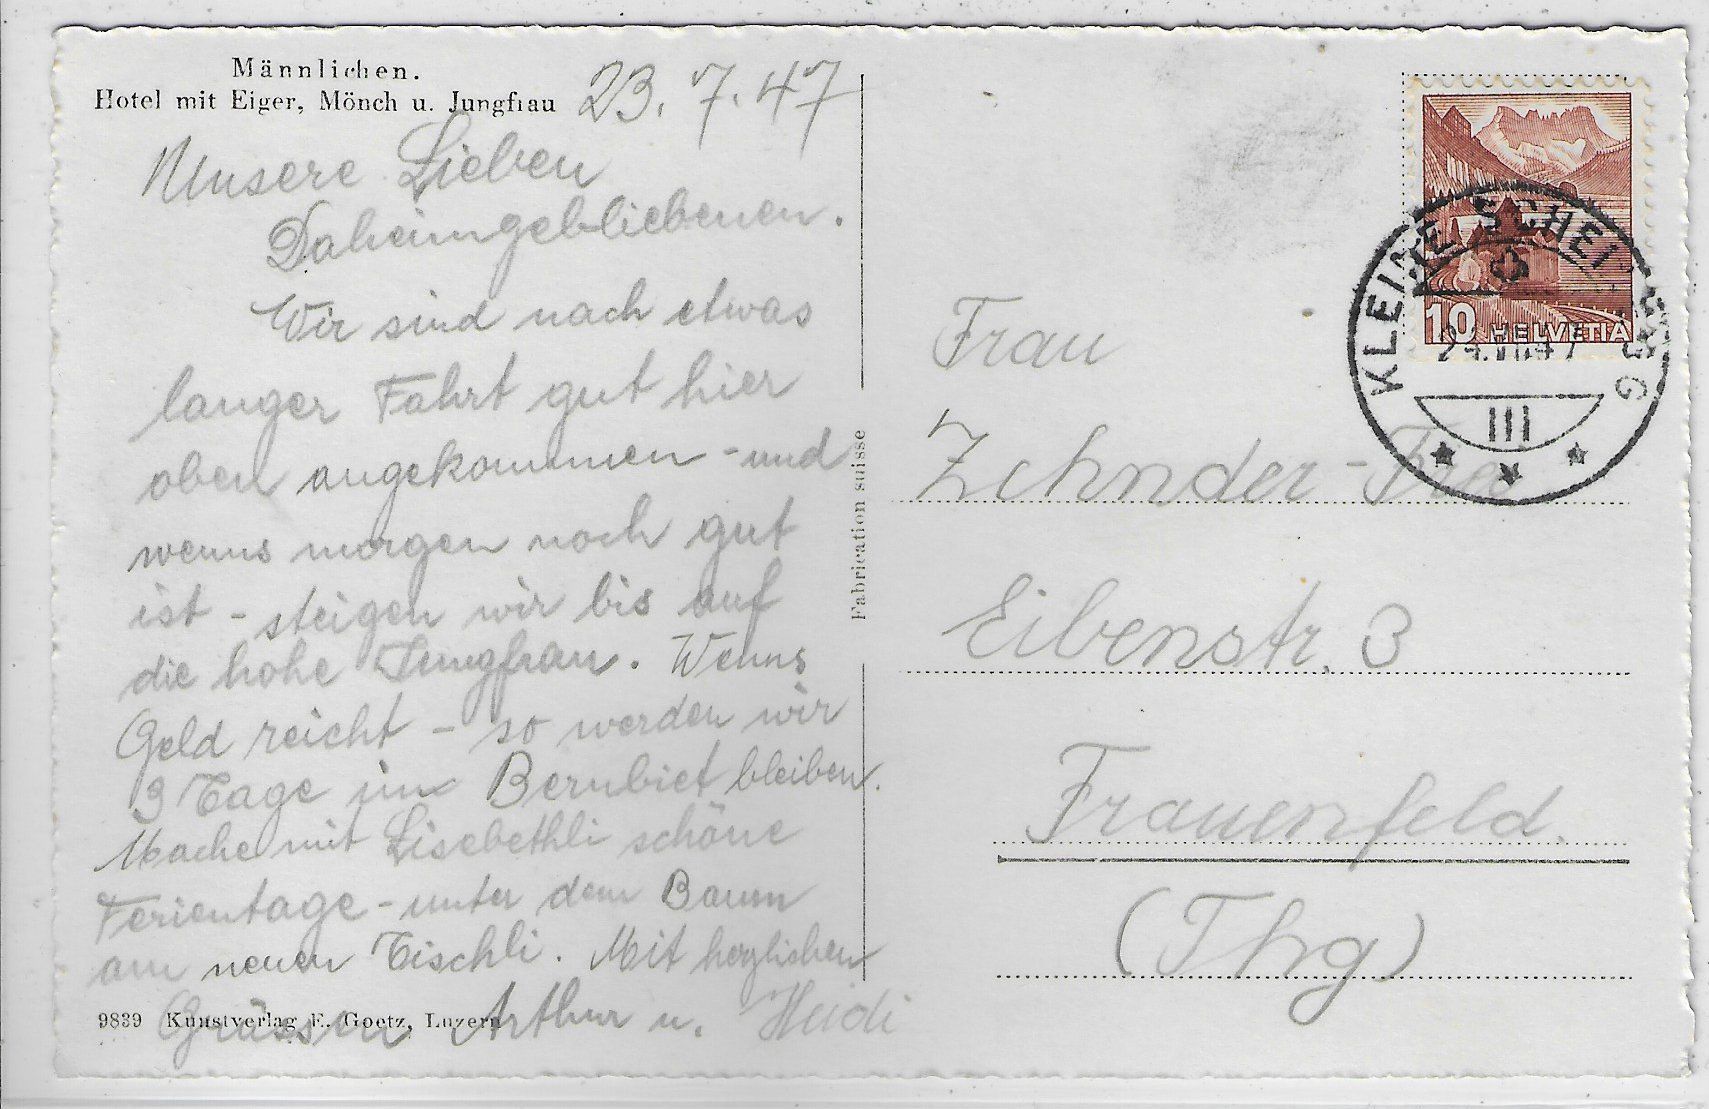 Männlichen.
Hotel mit Eiger, Mönch u. Jungfrau
23. 7. 47
Unsere Lieben
Daheimgebliebenen.
Wir sind nach etwas
langer Fahrt gut hier
oben angekommen - und
wenns morgen noch gut
ist - steigen wir bis auf
die hohe Jungfrau. Wenns
Geld reicht - so werden wir
3 Tage im Bernbiet bleiben.
Mache mit Lisebethli schöne
Ferientage - unter dem Baum
am neuen Tischli. Mit herzlichen
Grüssen Arthur u. Heidi
9839 Kunstverlag E. Goetz, Luzern
Fabrication suisse
KLEINE SCHEIDEGG
24.VII.47
III
10 HELVETIA
Frau
Zehnder-Frei
Eibenstr. 3
Frauenfeld.
(Thg)